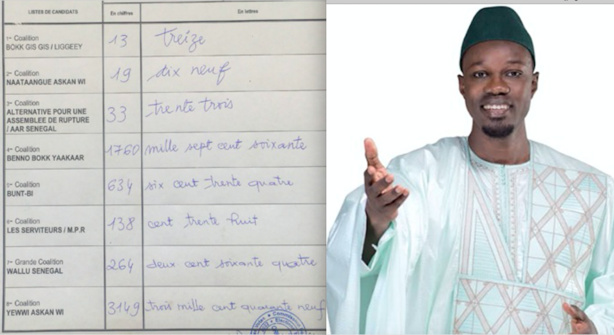 LISTES DE CANDIDATS En chiffres En lettres
1re Coalition
BOKK GIS GIS / LIGGEEY 13 treize
2e Coalition
NAATAANGUE ASKAN WI 19 dix neuf
3e Coalition
ALTERNATIVE POUR UNE
ASSEMBLEE DE RUPTURE
/ AAR SENEGAL 33 trente trois
4e Coalition
BENNO BOKK YAAKAAR 1760 mille sept cent soixante
5e Coalition
BUNT-BI 634 six cent trente quatre
6e Coalition
LES SERVITEURS / M.P.R 138 cent trente huit
7e Grande Coalition
WALLU SENEGAL 264 deux cent soixante quatre
8e Coalition
YEWWI ASKAN WI 3149 trois mille cent quarante neuf